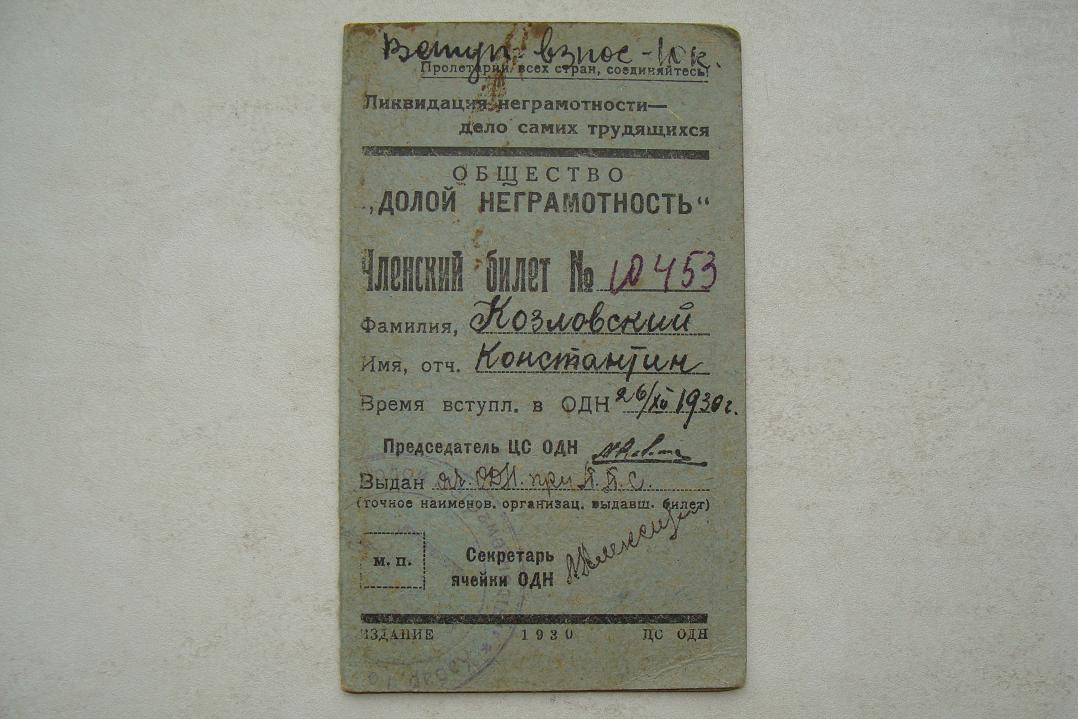 Вступ. взнос - 10 к.
Пролетарии всех стран, соединяйтесь!
Ликвидация неграмотности—
дело самих трудящихся
ОБЩЕСТВО
„ДОЛОЙ НЕГРАМОТНОСТЬ“
Членский билет № 10453
Фамилия, Козловский
Имя, отч. Константин
Время вступл. в ОДН 26/XII 1930 г.
Председатель ЦС ОДН
Выдан яч. ОДН. при П.П.С.
(точное наименов. организац. выдавш. билет)
м. п.
Секретарь
ячейки ОДН
ИЗДАНИЕ 1930 ЦС ОДН